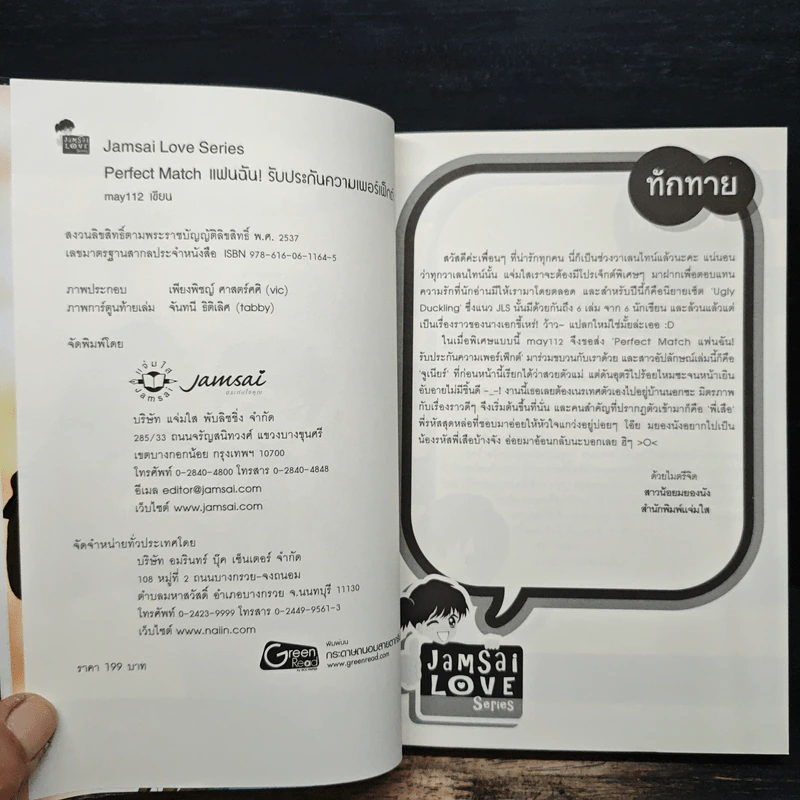 JAMSAI
LOVE
Series
Jamsai Love Series
Perfect Match แฟนฉัน! รับประกันความเพอร์เฟ็กต์
may112 เขียน
สงวนลิขสิทธิ์ตามพระราชบัญญัติลิขสิทธิ์ พ.ศ. 2537
เลขมาตรฐานสากลประจำหนังสือ ISBN 978-616-06-1164-5
ภาพประกอบ เพียงพิชญ์ ศาสตร์คดี (vic)
ภาพการ์ตูนท้ายเล่ม จันทนี ธิติเลิศ (tabby)
จัดพิมพ์โดย
แจ่มใส
Jamsai
Jamsai
บริษัท แจ่มใส พับลิชชิ่ง จำกัด
285/33 ถนนจรัญสนิทวงศ์ แขวงบางขุนศรี
เขตบางกอกน้อย กรุงเทพฯ 10700
โทรศัพท์ 0-2840-4800 โทรสาร 0-2840-4848
อีเมล editor@jamsai.com
เว็บไซต์ www.jamsai.com
จัดจำหน่ายทั่วประเทศโดย
บริษัท อมรินทร์ บุ๊ค เซ็นเตอร์ จำกัด
108 หมู่ที่ 2 ถนนบางกรวย-จงถนอม
ตำบลมหาสวัสดิ์ อำเภอบางกรวย จ.นนทบุรี 11130
โทรศัพท์ 0-2423-9999 โทรสาร 0-2449-9561-3
เว็บไซต์ www.naiin.com
ราคา 199 บาท
Green
Read
พิมพ์บน
กระดาษถนอมสายตาสี
www.greenread.com
ทักทาย
สวัสดีค่ะเพื่อนๆ ที่น่ารักทุกคน นี่ก็เป็นช่วงวาเลนไทน์แล้วนะคะ แน่นอน
ว่าทุกวาเลนไทน์นั้น แจ่มใสเราจะต้องมีโปรเจ็กต์พิเศษๆ มาฝากเพื่อตอบแทน
ความรักที่นักอ่านมีให้เรามาโดยตลอด และสำหรับปีนี้ก็คือนิยายเซ็ต 'Ugly
Duckling' ซึ่งแนว JLS นั้นมีด้วยกันถึง 6 เล่ม จาก 6 นักเขียน และล้วนแล้วแต่
เป็นเรื่องราวของนางเอกขี้เหร่! ว้าว~ แปลกใหม่ใช่มั้ยล่ะเออ :D
ในเมื่อพิเศษแบบนี้ may112 จึงขอส่ง 'Perfect Match แฟนฉัน!
รับประกันความเพอร์เฟ็กต์' มาร่วมขบวนกับเราด้วย และสาวอัปลักษณ์เล่มนี้ก็คือ
'จูเนียร์' ที่ก่อนหน้านี้เรียกได้ว่าสวยตัวแม่ แต่ดันอุตริไปร้อยไหมซะจนหน้าเยิน
อับอายไม่มีชิ้นดี -_-! งานนี้เธอเลยต้องเนรเทศตัวเองไปอยู่บ้านนอกซะ มิตรภาพ
กับเรื่องราวดีๆ จึงเริ่มต้นขึ้นที่นั่น และคนสำคัญที่ปรากฏตัวเข้ามาก็คือ 'พี่เสือ'
พี่รหัสสุดหล่อที่ชอบมาอ่อยให้หัวใจแกว่งอยู่บ่อยๆ โอ๊ย มยองนังอยากไปเป็น
น้องรหัสพี่เสือบ้างจัง อ่อยมาอ้อนกลับนะบอกเลย ฮิๆ >O<
ด้วยไมตรีจิต
สาวน้อยมยองนัง
สำนักพิมพ์แจ่มใส
JAMSAI
LOVE
Series